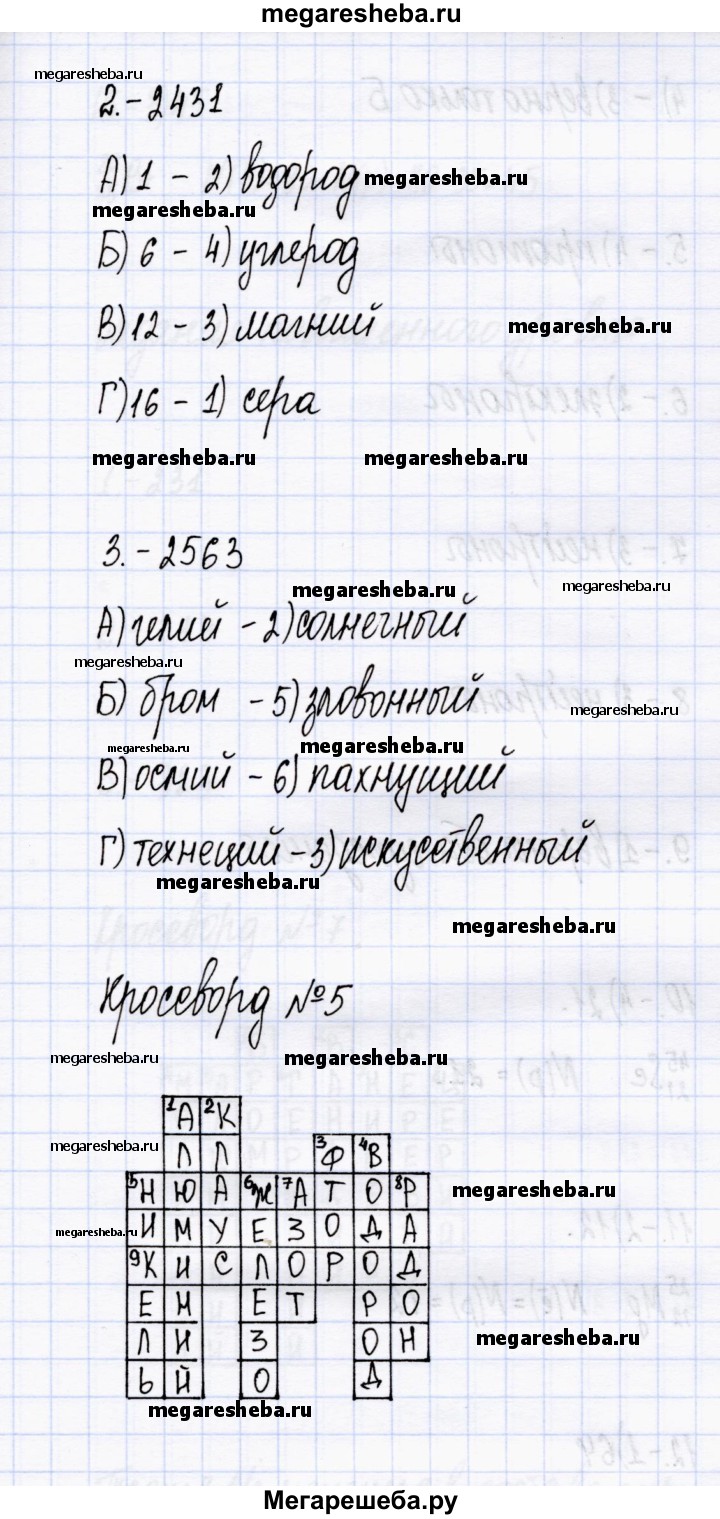 megaresheba.ru
megaresheba.ru
2.-2431
А) 1 - 2) водород megaresheba.ru
megaresheba.ru
Б) 6 - 4) углерод
В) 12 - 3) магний megaresheba.ru
Г) 16 - 1) сера
megaresheba.ru megaresheba.ru
3.-2563
megaresheba.ru megaresheba.ru
А) гелий - 2) солнечный
megaresheba.ru
Б) бром - 5) зловонный megaresheba.ru
megaresheba.ru megaresheba.ru
В) осмий - 6) пахнущий
Г) технеций - 3) искусственный
megaresheba.ru
megaresheba.ru
Кросворд №5
megaresheba.ru megaresheba.ru
1А 2К
megaresheba.ru Л Л 3Ф 4В
5Н Ю А 6Ж 7А Т О 8Р megaresheba.ru
megaresheba.ru И М У Е З О Д А
9К И С Л О Р О Д
Е Н Е Т Р О
Л И З О Н megaresheba.ru
Ь Й О Д
megaresheba.ru
Мегарешеба.ру